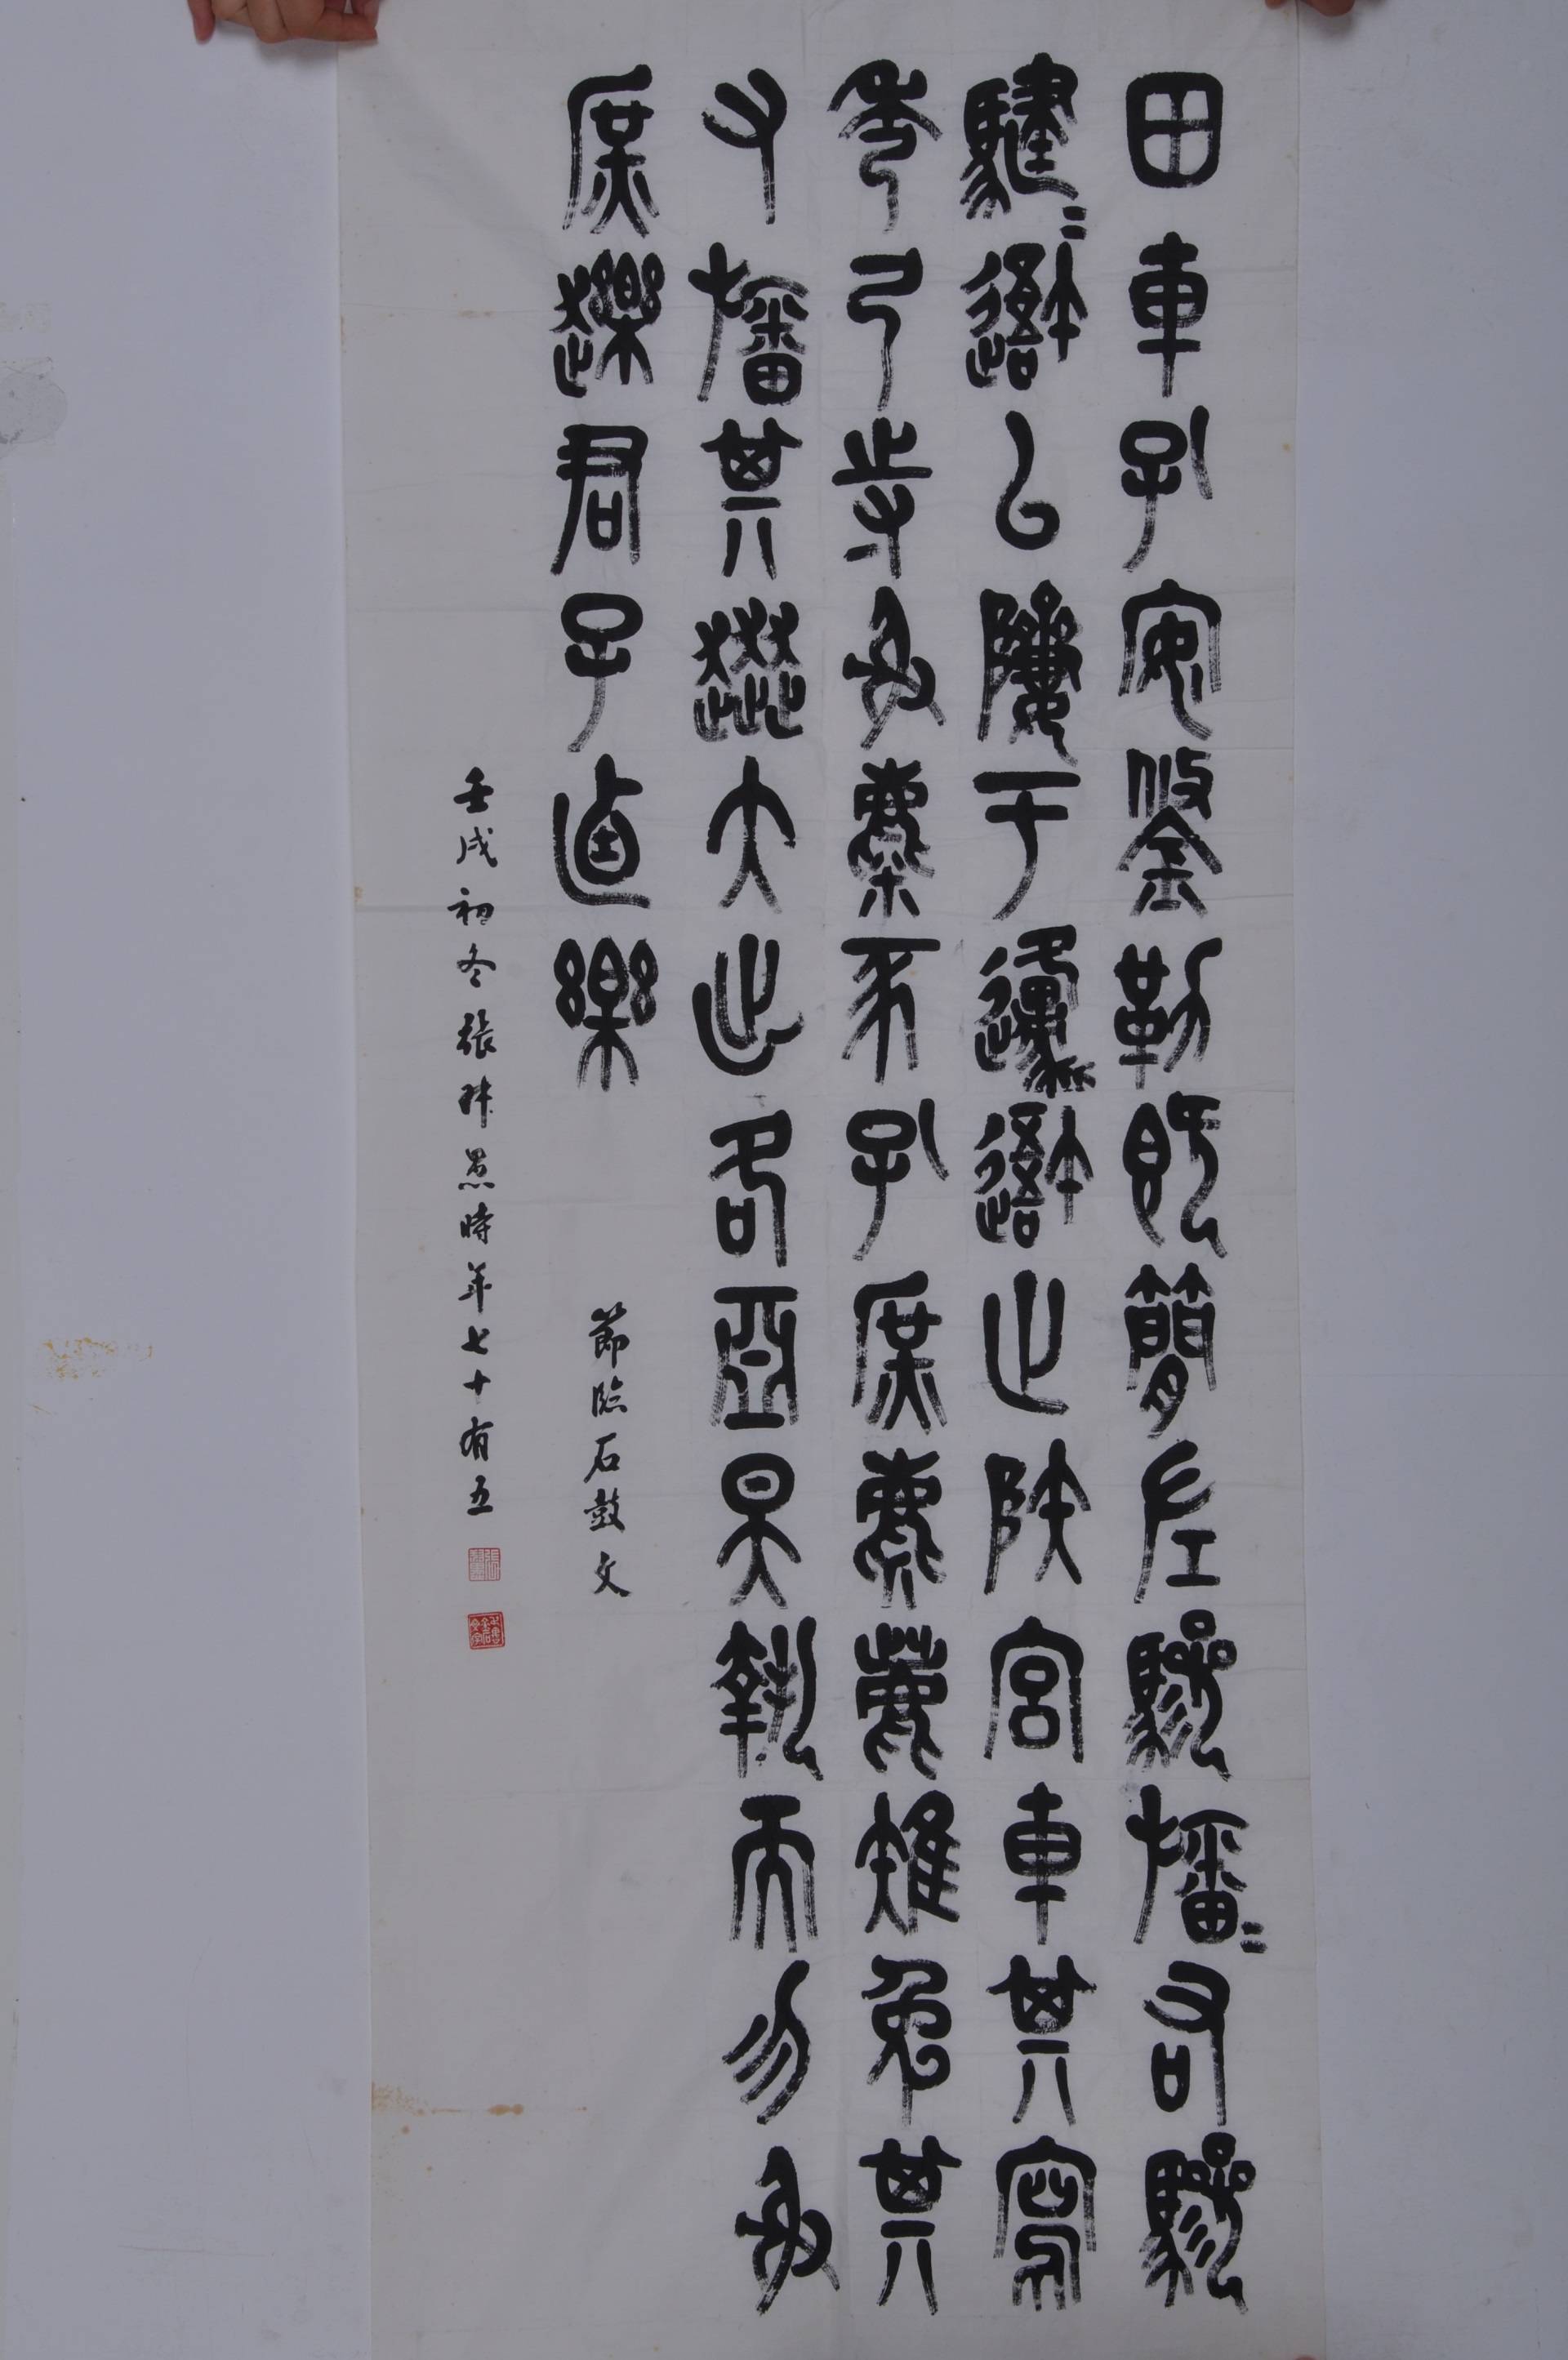 田車孔安鋚勒既簡左驂旛〻右驂
騝〻䢐以隮于邍䢐止陝宮車其寫
秀弓寺射麋豕孔庶麀鹿雉兔其
又旛其奔大出各亞昊執而勿射
庶趯君子逌樂
節臨石鼓文
壬戌初冬張時年七十有五